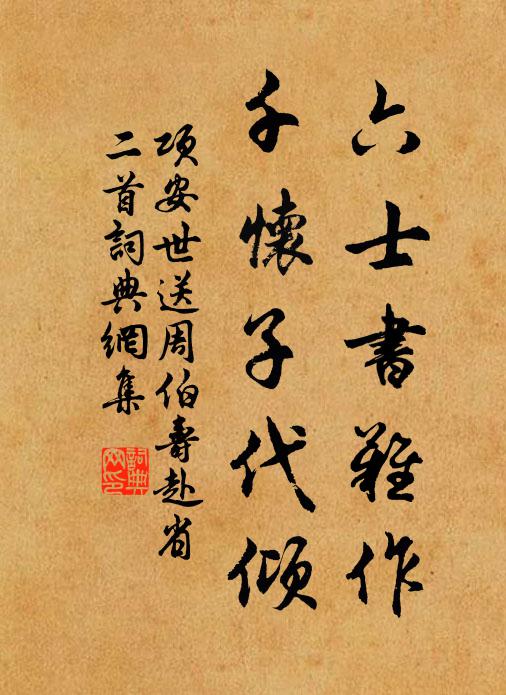 六士書難作
千懷子代傾
項安世送周伯壽赴省
二首詞典網集
詞典網印